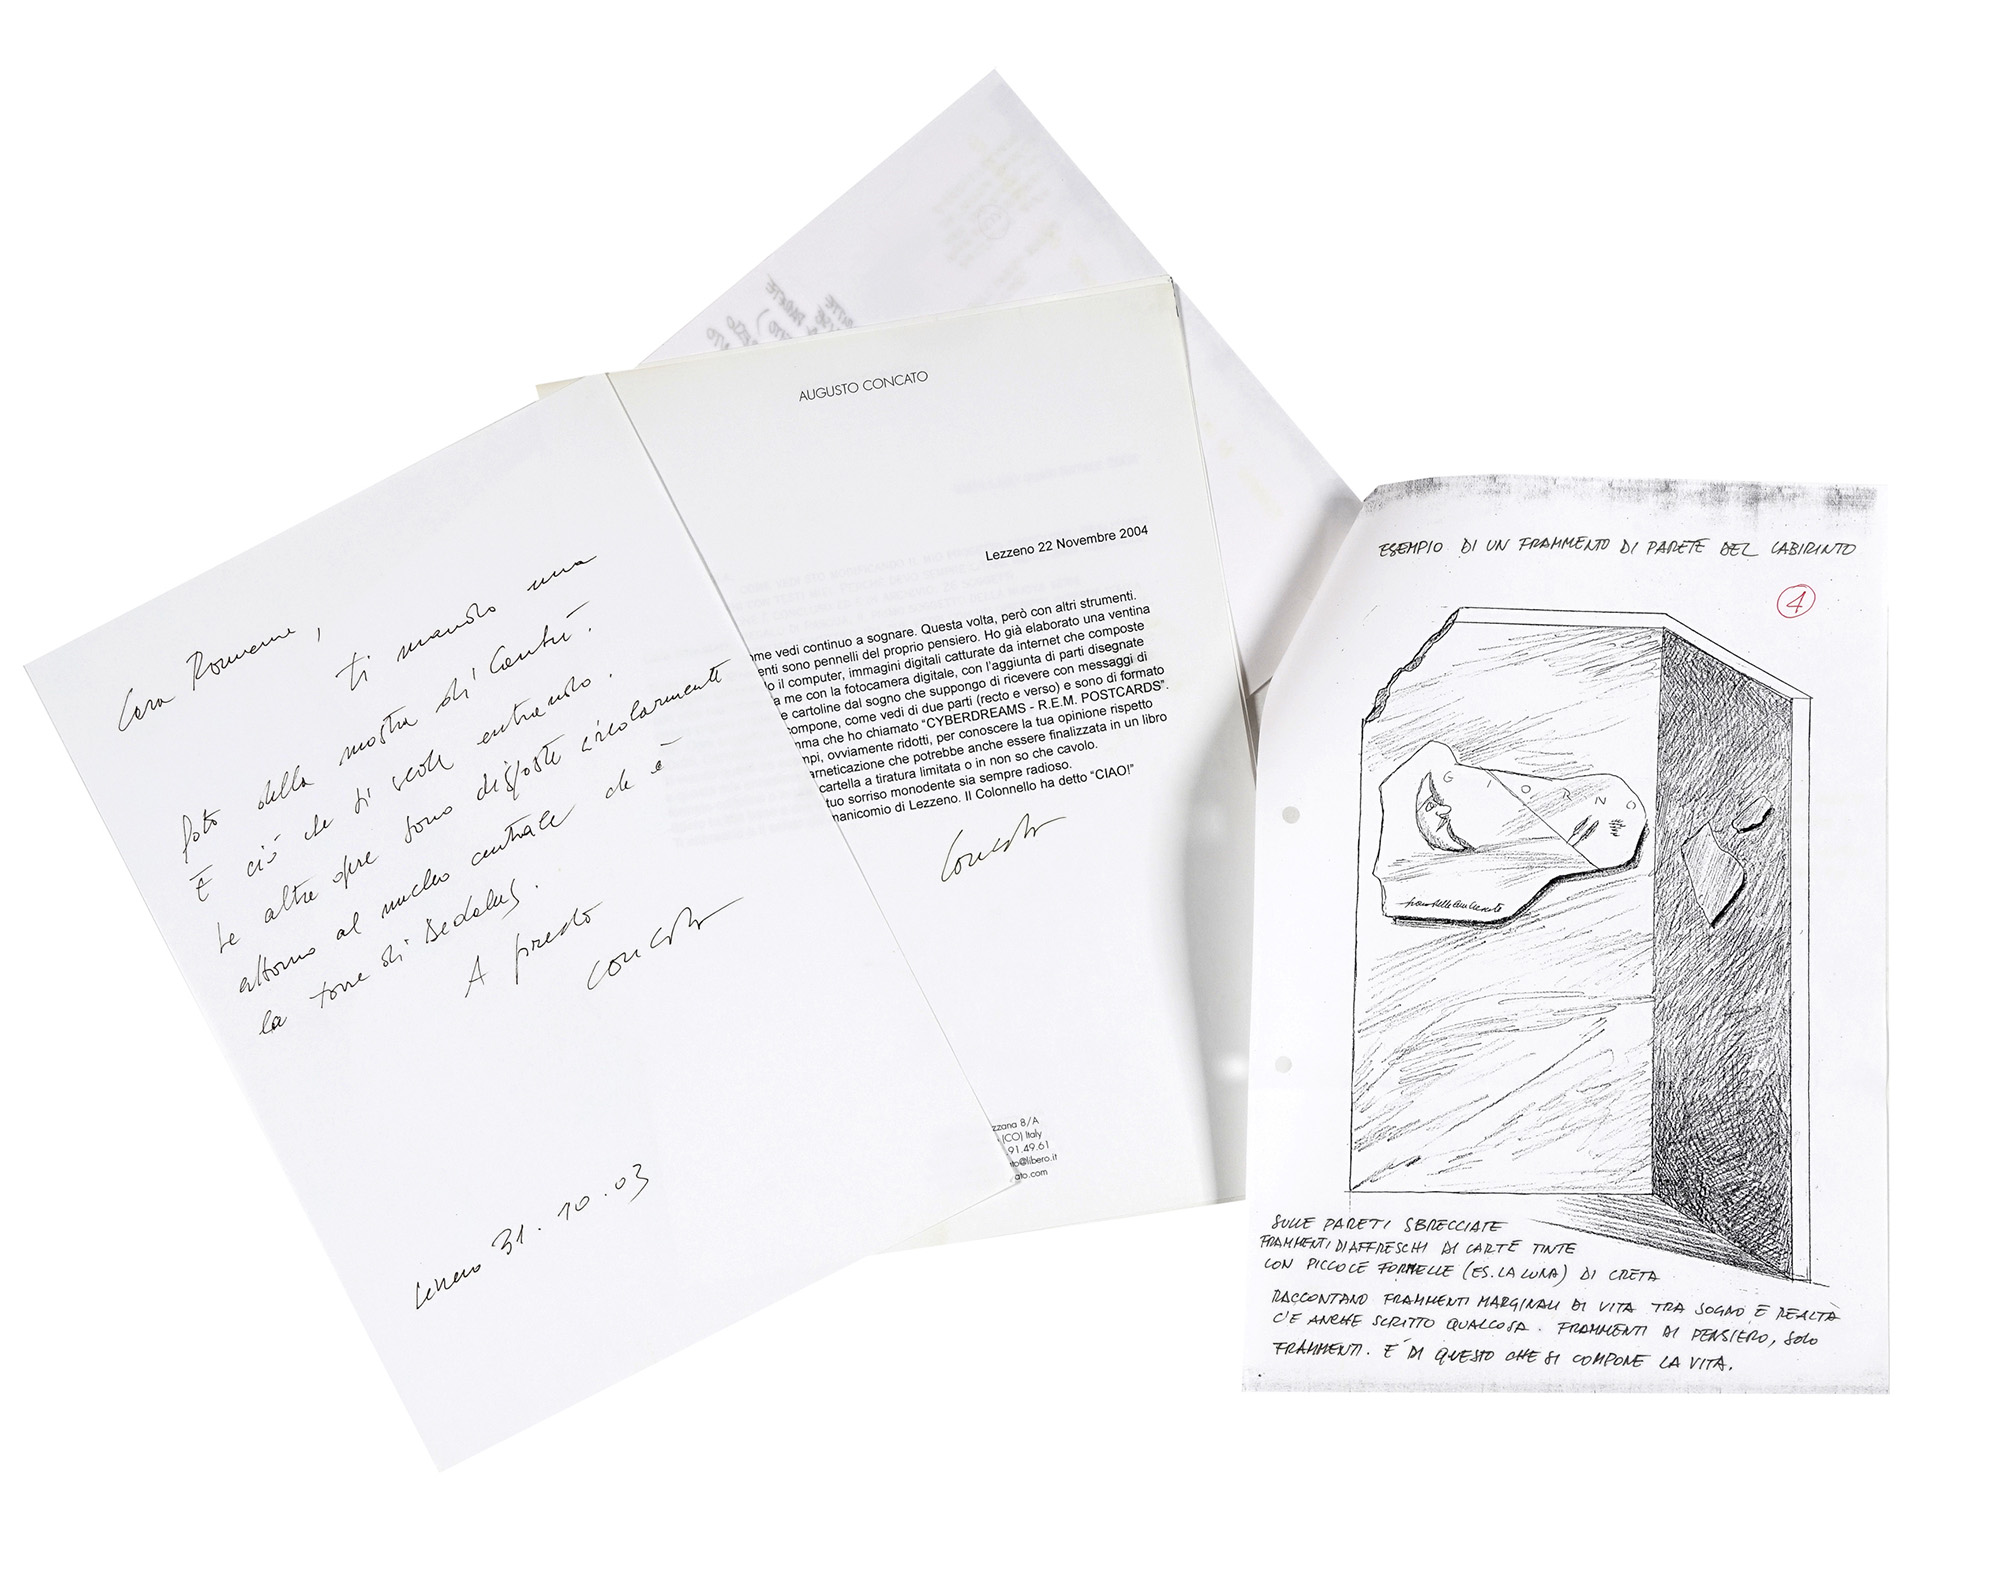 Cara
ti mando una
foto della mostra di Cantù.
È ciò che si vede entrando.
Le altre opere sono disposte circolarmente
attorno al nucleo centrale che è
la torre di Dedalus.
A presto
Concato
Lezzeno 31.10.03
AUGUSTO CONCATO
Lezzeno 22 Novembre 2004
ome vedi continuo a sognare. Questa volta, però con altri strumenti.
enti sono pennelli del proprio pensiero. Ho già elaborato una ventina
o il computer, immagini digitali catturate da internet che composte
a me con la fotocamera digitale, con l'aggiunta di parti disegnate
e cartoline dal sogno che suppongo di ricevere con messaggi di
compone, come vedi di due parti (recto e verso) e sono di formato
mma che ho chiamato "CYBERDREAMS - R.E.M. POSTCARDS".
mpi, ovviamente ridotti, per conoscere la tua opinione rispetto
arneticazione che potrebbe anche essere finalizzata in un libro
cartella a tiratura limitata o in non so che cavolo.
tuo sorriso monodente sia sempre radioso.
manicomio di Lezzeno. Il Colonnello ha detto "CIAO!"
Concato
zzana 8/A
(CO) Italy
91.49.61
to@libero.it
ato.com
ESEMPIO DI UN FRAMMENTO DI PARETE DEL LABIRINTO
4
GIORNO
SULLE PARETI SBRECCIATE
FRAMMENTI DI AFFRESCHI DI CARTE TINTE
CON PICCOLE FORMELLE (ES. LA LUNA) DI CRETA
RACCONTANO FRAMMENTI MARGINALI DI VITA TRA SOGNO E REALTÀ
C'È ANCHE SCRITTO QUALCOSA. FRAMMENTI DI PENSIERO, SOLO
FRAMMENTI. È DI QUESTO CHE SI COMPONE LA VITA.